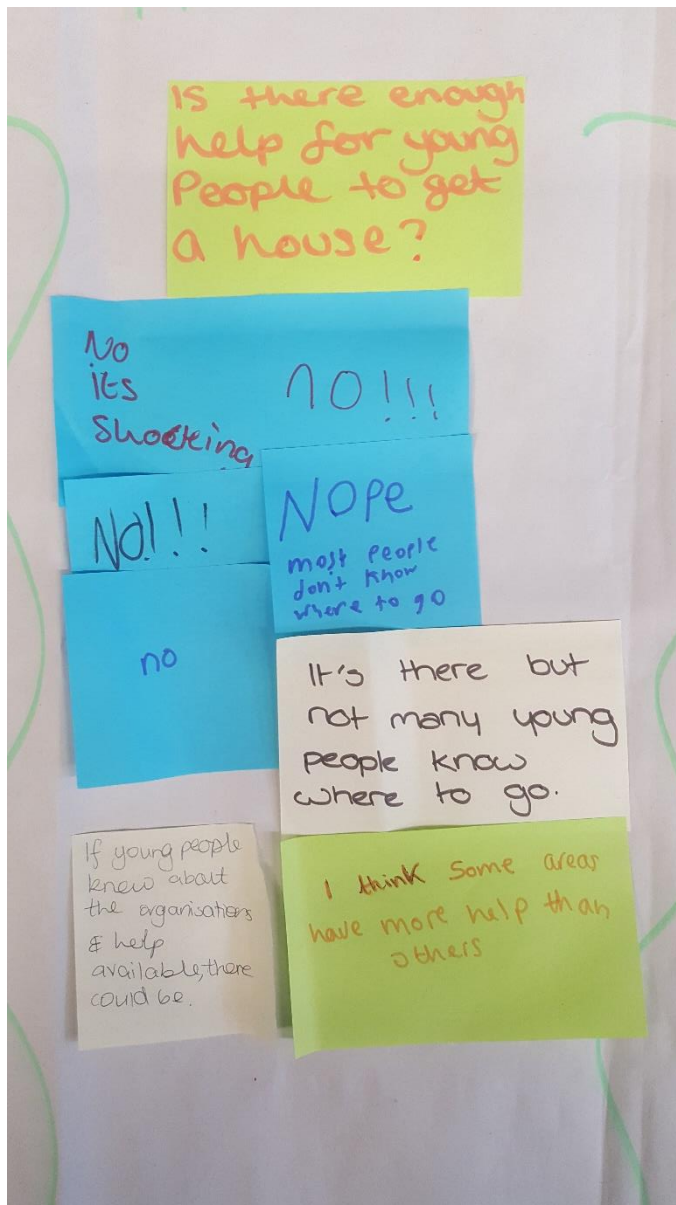 Is there enough
help for young
People to get
a house?
No
its
Shocking
no!!!
No!!!
NOPe
most people
don't know
where to go
no
It's there but
not many young
people know
where to go.
If young people
knew about
the organisations
& help
available, there
could be.
I think some areas
have more help than
others